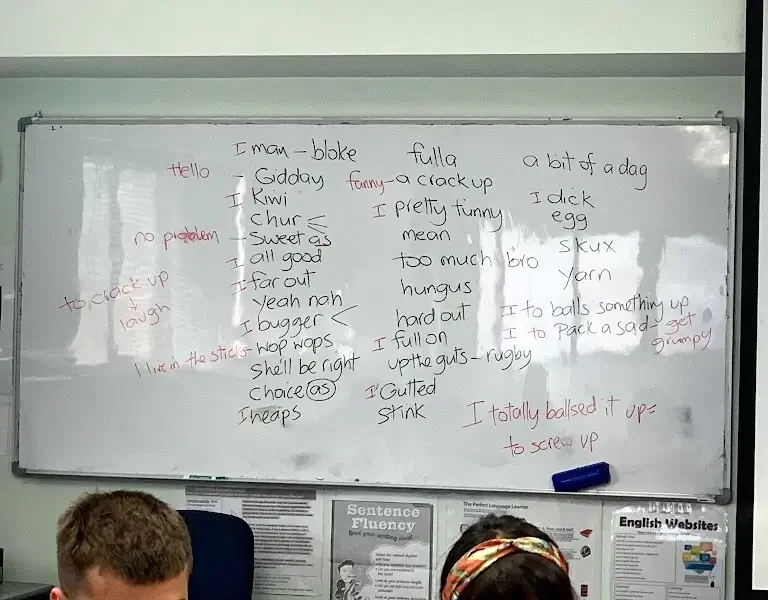 I man - bloke
Hello - Gidday
I Kiwi
chur <
no problem - Sweet as
I all good
I far out
to crack up
↓
laugh
yeah nah
I bugger <
I live in the sticks - wop wops
She'll be right
choice as
I heaps
fulla
funny - a crack up
I pretty funny
mean
too much bro
hungus
hard out
I full on
up the guts - rugby
I Gutted
stink
a bit of a dag
I dick
egg
skux
yarn
I to balls something up
I to pack a sad - get
grumpy
I totally ballsed it up =
to screw up
Sentence
Fluency
Read your writing aloud
The Perfect Language Learner
English Websites